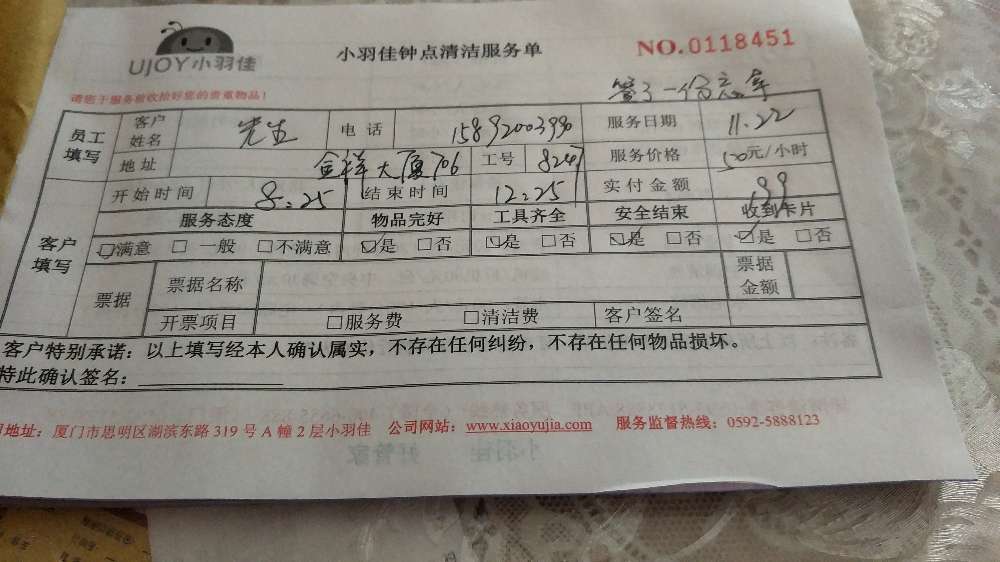 UJOY小羽佳
小羽佳钟点清洁服务单
NO.0118451
请您于服务前收拾好您的贵重物品!
签了一份忘拿
员工填写 客户姓名 先生 电话 15892003990 服务日期 11.22
地址 金祥大厦706 工号 8247 服务价格 50元/小时
客户填写 开始时间 8:25 结束时间 12:25 实付金额 99
服务态度 物品完好 工具齐全 安全结束 收到卡片
☑满意 □一般 □不满意 ☑是 □否 ☑是 □否 ☑是 □否 ☑是 □否
票据 票据名称 票据金额
开票项目 □服务费 □清洁费 客户签名
客户特别承诺：以上填写经本人确认属实，不存在任何纠纷，不存在任何物品损坏。
特此确认签名：
地址：厦门市思明区湖滨东路 319 号 A 幢 2 层小羽佳 公司网站：www.xiaoyujia.com 服务监督热线：0592-5888123